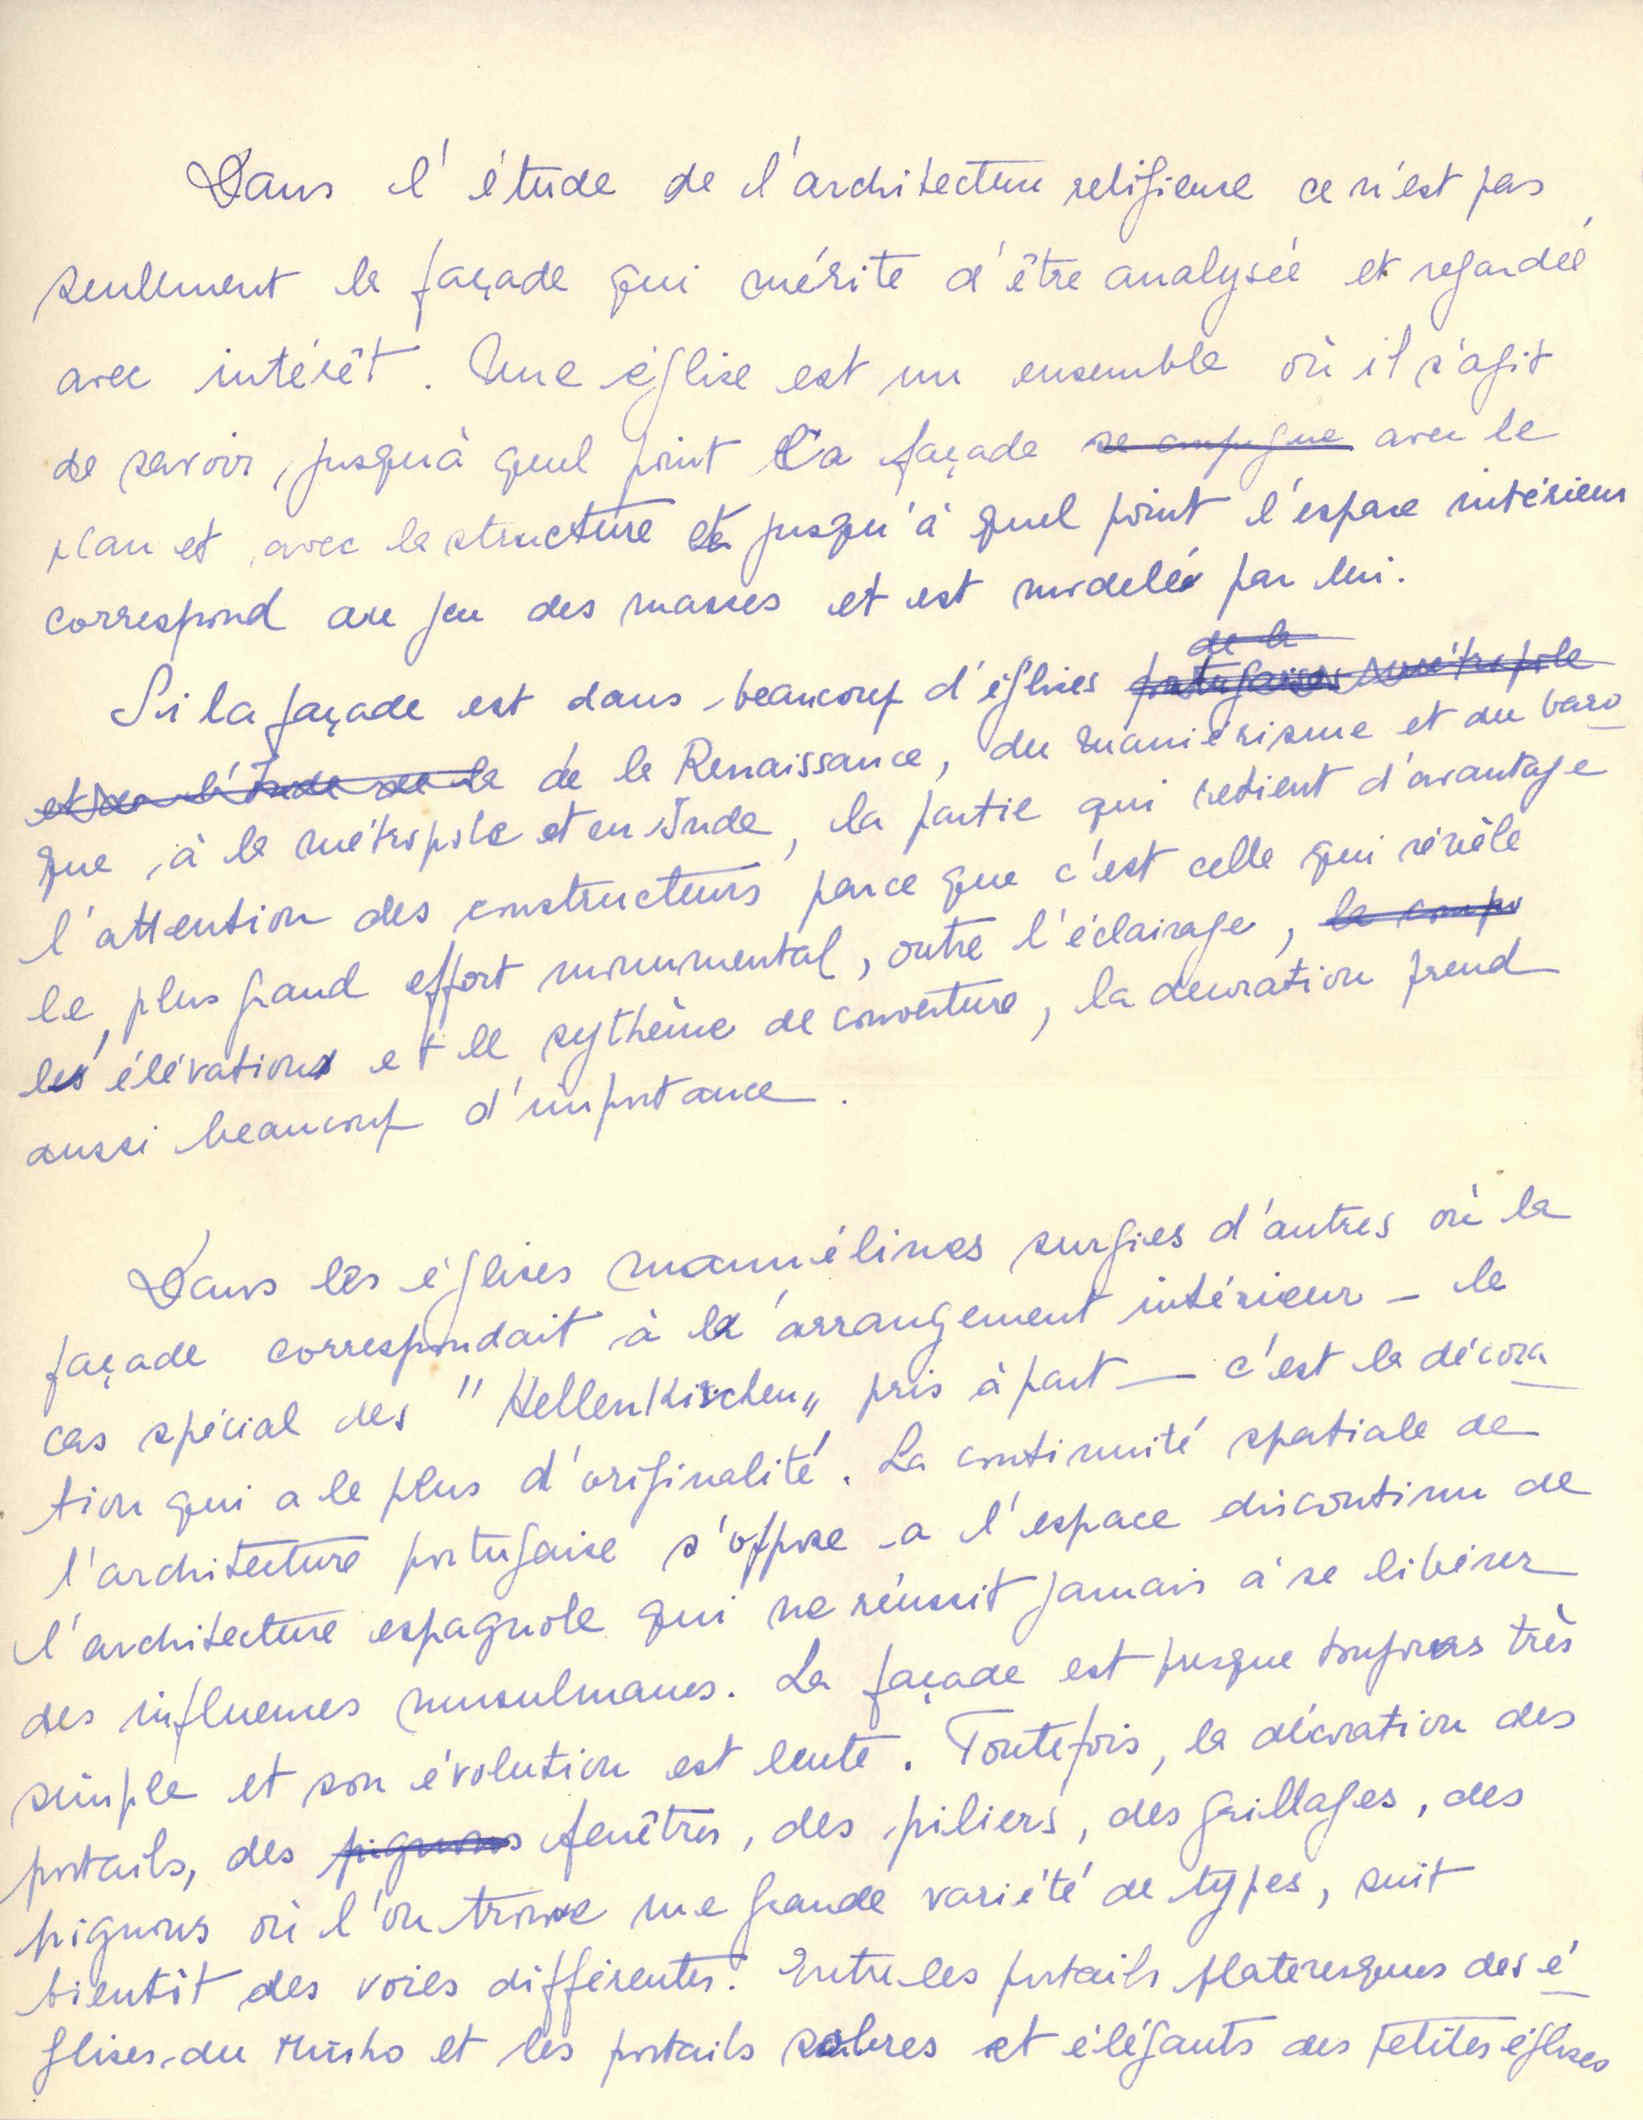 Dans l'étude de l'architecture religieuse ce n'est pas
seulement la façade qui mérite d'être analysée et regardée
avec intérêt. Une église est un ensemble où il s'agit
de savoir, jusqu'à quel point la façade se conjugue avec le
plan et avec la structure et jusqu'à quel point l'espace intérieur
correspond au jeu des masses et est modelé par lui.
de la
Si la façade est dans beaucoup d'églises portugaises métropole
et de l'Inde de la de la Renaissance, du maniérisme et du baro
que, à la métropole et en Inde, la partie qui retient d'avantage
l'attention des constructeurs parce que c'est celle qui révèle
le plus grand effort monumental, outre l'éclairage, la compo
les élévations et le sythème de couverture, la decoration prend
aussi beaucoup d'importance.
Dans les églises manuélines surgies d'autres où la
façade correspondait à l'arrangement intérieur - le
cas spécial des "Hellenkirchen" pris à part - c'est la décora
tion qui a le plus d'originalité. La continuité spatiale de
l'architecture portugaise s'oppose a l'espace discontinu de
l'architecture espagnole qui ne réussit jamais à se libérer
des influences musulmanes. La façade est presque toujours très
simple et son évolution est lente. Toutefois, la décoration des
portails, des pignons fenêtres, des piliers, des grillages, des
pignons où l'on trouve une grande variété de types, suit
bientôt des voies différentes. Entre les portails plateresques des é
glises du Minho et les portails sobres et élégants des petites églises